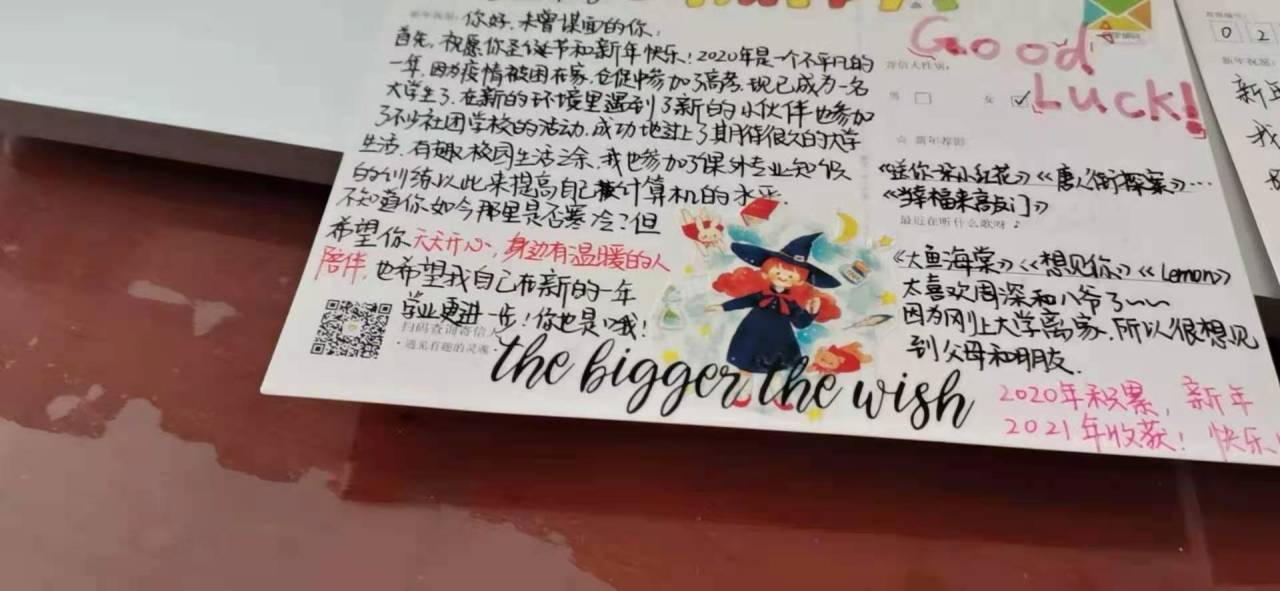 新年祝福:
你好,未曾谋面的你,
首先,祝愿你圣诞节和新年快乐!2020年是一个不平凡的
一年,因为疫情被困在家,仓促中参加了高考,现已成为一名
大学生了,在新的环境里遇到了新的小伙伴也参加
了不少社团学校的活动,成功地过上了期待很久的大学
生活,有趣校园生活之余,我也参加了课外专业知识
的训练以此来提高自己计算机的水平.
不知道你如今那里是否寒冷?但
希望你天天开心,身边有温暖的人
陪伴,也希望我自己在新的一年
学业更进一步!你也是哦!
扫码查询寄信人
·遇见有趣的灵魂·
the bigger the wish
Good
Luck!
寄信人性别:
男 女
☆ 新年荐影
《送你一朵小红花》《唐人街探案》...
《当幸福来敲门》
最近在听什么歌呀♪
《大鱼海棠》《想见你》《Lemon》
太喜欢周深和八爷了~~
因为刚上大学离家,所以很想见
到父母和朋友.
2020年积累,新年
2021年收获!快乐!
0 2
新年祝愿:
我